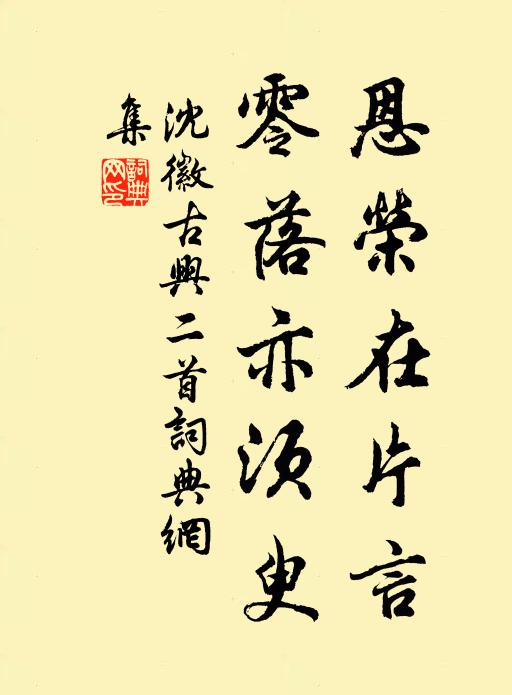 恩榮在片言
零落亦須臾
沈徽古興二首詞典網
集
詞典
网印